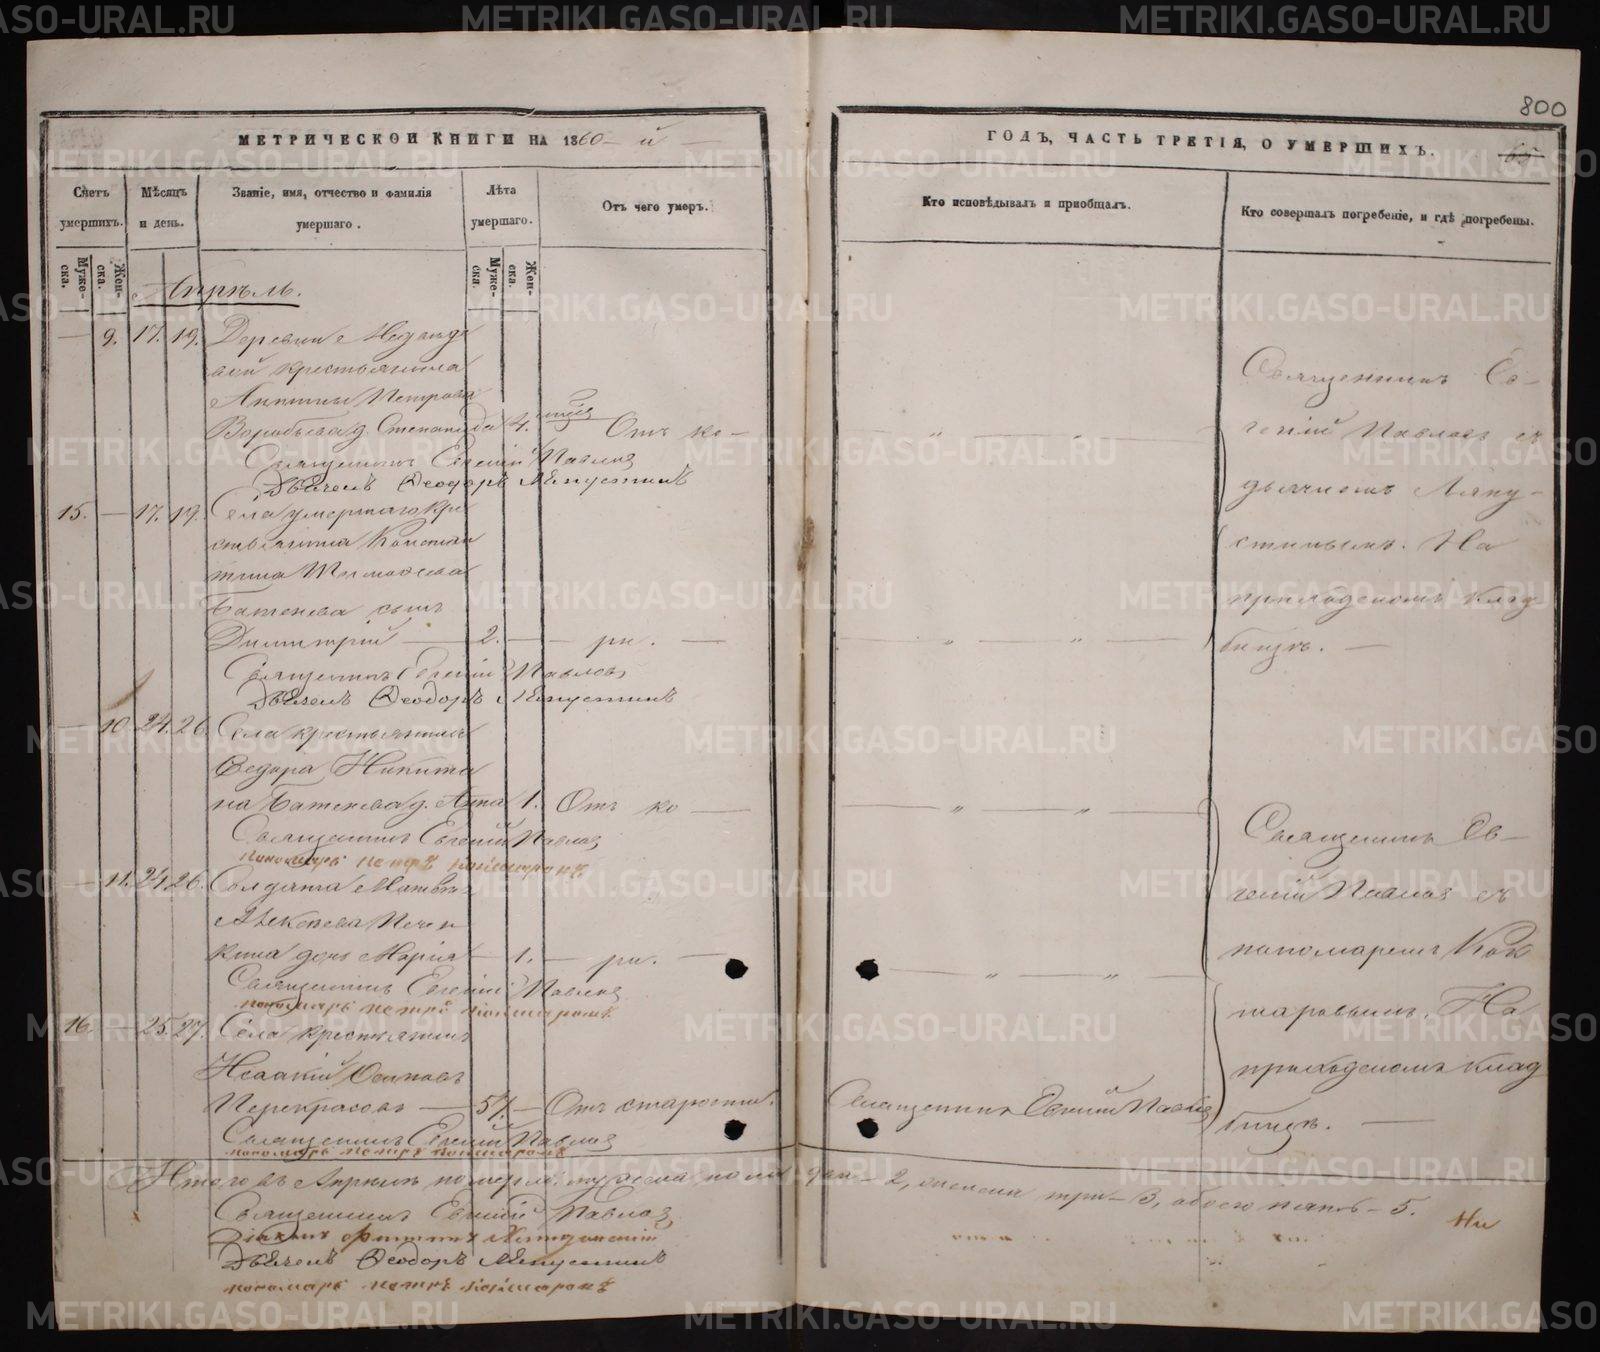 800
МЕТРИЧЕСКОИ КНИГИ НА 1860-й
ГОДЪ, ЧАСТЬ ТРЕТІЯ, О УМЕРШИХЪ.
Счетъ умершихъ.
Мѣсяцъ и день.
Званіе, имя, отчество и фамилія умершаго.
Лѣта умершаго.
Отъ чего умеръ.
Кто исповѣдывалъ и пріобщалъ.
Кто совершалъ погребеніе, и гдѣ погребены.
Муже-ска.
Жен-ска.
Муже-ска.
Жен-ска.
Апрѣль.
9. 17. 19. Деревни
крестьянина
Петрова
Воробьева д. Степанида 4. Отъ ко-
Священникъ Евгеній Павловъ
Дьячекъ Ѳеодоръ Ляпустинъ
15. — 17. 19. Села умершаго кре
стьянина Констан
тина
Батенева сынъ
Димитрій — 2. — ри. —
Священникъ Евгеній Павловъ
Дьячекъ Ѳеодоръ Ляпустинъ
— 10 24. 26. Села крестьянина
Ѳедора Никити
на Батенева д. Анна 1. Отъ ко —
Священникъ Евгеній Павловъ
пономарь петръ
— 11. 24. 26. Солдата Матвѣя
Алексѣева
кина дочь Марія — 1. — ри. —
Священникъ Евгеній Павловъ
пономарь петръ
16. — 25. 27. Села крестьянинъ
Исаакій Осиповъ
Перекрасовъ — 57. — Отъ старости. Священникъ Евгеній Павловъ
Священникъ Евгеній Павловъ
пономарь петръ
Священникъ Ев-
геній Павловъ съ
дьячкомъ Ляпу-
стинымъ. На
приходскомъ клад
бищѣ. —
Священникъ Ев-
геній Павловъ съ
пономаремъ
На
приходскомъ клад
бищѣ. —
Итого въ Апрѣлѣ померло: мужеска пола два - 2, женска три - 3, обоего пять - 5.
Священникъ Евгеній Павловъ
Дьячекъ Ѳеодоръ Ляпустинъ
пономарь петръ
METRIKI.GASO-URAL.RU